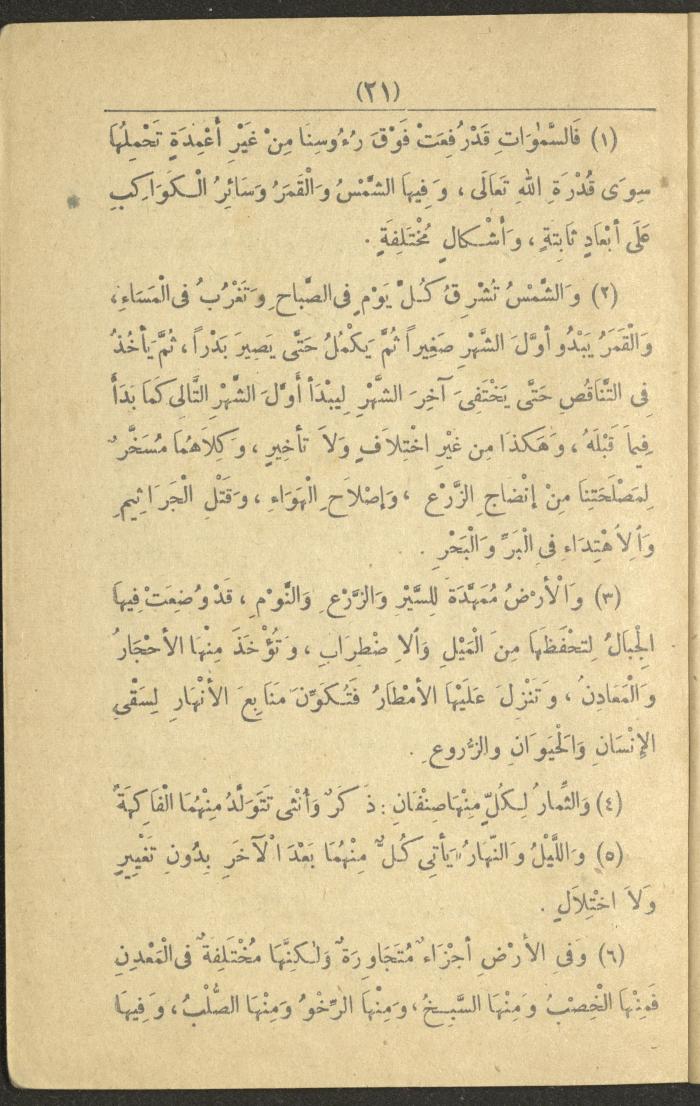 (٢١)
(١) فَالسَّمٰوَاتِ قَدْ رُفِعَتْ فَوْقَ رُءُوسِنَا مِنْ غَيْرِ أَعْمِدَةٍ تَحْمِلُهَا
سِوَى قُدْرَةِ اللهِ تَعَالَى ، وَفِيهَا الشَّمْسُ وَالْقَمَرُ وَسَائِرُ الْكَوَاكِبِ
عَلَى أَبْعَادٍ ثَابِتَةٍ ، وَأَشْكَالٍ مُخْتَلِفَةٍ .
(٢) وَالشَّمْسُ تُشْرِقُ كُلَّ يَوْمٍ فِى الصَّبَاحِ وَتَغْرُبُ فِى الْمَسَاءِ،
وَالْقَمَرُ يَبْدُو أَوَّلَ الشَّهْرِ صَغِيراً ثُمَّ يَكْمُلُ حَتَّى يَصِيرَ بَدْراً ، ثُمَّ يَأْخُذُ
فِى التَّنَاقُصِ حَتَّى يَخْتَفِىَ آخِرَ الشَّهْرِ لِيَبْدَأَ أَوَّلَ الشَّهْرِ التَّالِى كَمَا بَدَأَ
فِيمَا قَبْلَهُ ، وَهَكَذَا مِن غَيْرِ اخْتِلاَفٍ وَلاَ تَأْخِيرٍ ، وَكِلاَهُمَا مُسَخَّرٌ
لِمَصْلَحَتِنَا مِنْ إِنْضَاجِ الزَّرْعِ ، وَإِصْلاَحِ الْهَوَاءِ ، وَقَتْلِ الْجَرَاثِيمِ
وَالاِهْتِدَاءِ فِى الْبَرِّ وَالْبَحْرِ .
(٣) وَالْأَرْضُ مُمَهَّدَةٌ لِلسَّيْرِ وَالزَّرْعِ وَالنَّوْمِ ، قَدْ وُضِعَتْ فِيهَا
الْجِبَالُ لِتَحْفَظَهَا مِنَ الْمَيْلِ وَالاِضْطِرَابِ ، وَتُؤْخَذَ مِنْهَا الأَحْجَارُ
وَالْمَعَادِنُ ، وَتَنْزِلَ عَلَيْهَا الأَمْطَارُ فَتُكَوِّنَ مَنَابِعَ الأَنْهَارِ لِسَقْىِ
الإِنْسَانِ وَالْحَيَوَانِ وَالزُّرُوعِ .
(٤) وَالثِّمَارُ لِكُلٍّ مِنْهَا صِنْفَانِ : ذَكَرٌ وَأُنْثَى تَتَوَلَّدُ مِنْهُمَا الْفَاكِهَةُ
(٥) وَاللَّيْلُ وَالنَّهَارُ يَأْتِى كُلٌّ مِنْهُمَا بَعْدَ الْآخَرِ بِدُونِ تَغْيِيرٍ
وَلاَ اخْتِلاَلٍ .
(٦) وَفِى الأَرْضِ أَجْزَاءٌ مُتَجَاوِرَةٌ وَلٰكِنَّهَا مُخْتَلِفَةٌ فِى الْمَعْدِنِ
فَمِنْهَا الْخَصْبُ وَمِنْهَا السَّبِخُ ، وَمِنْهَا الرِّخْوُ وَمِنْهَا الصُّلْبُ ، وَفِيهَا